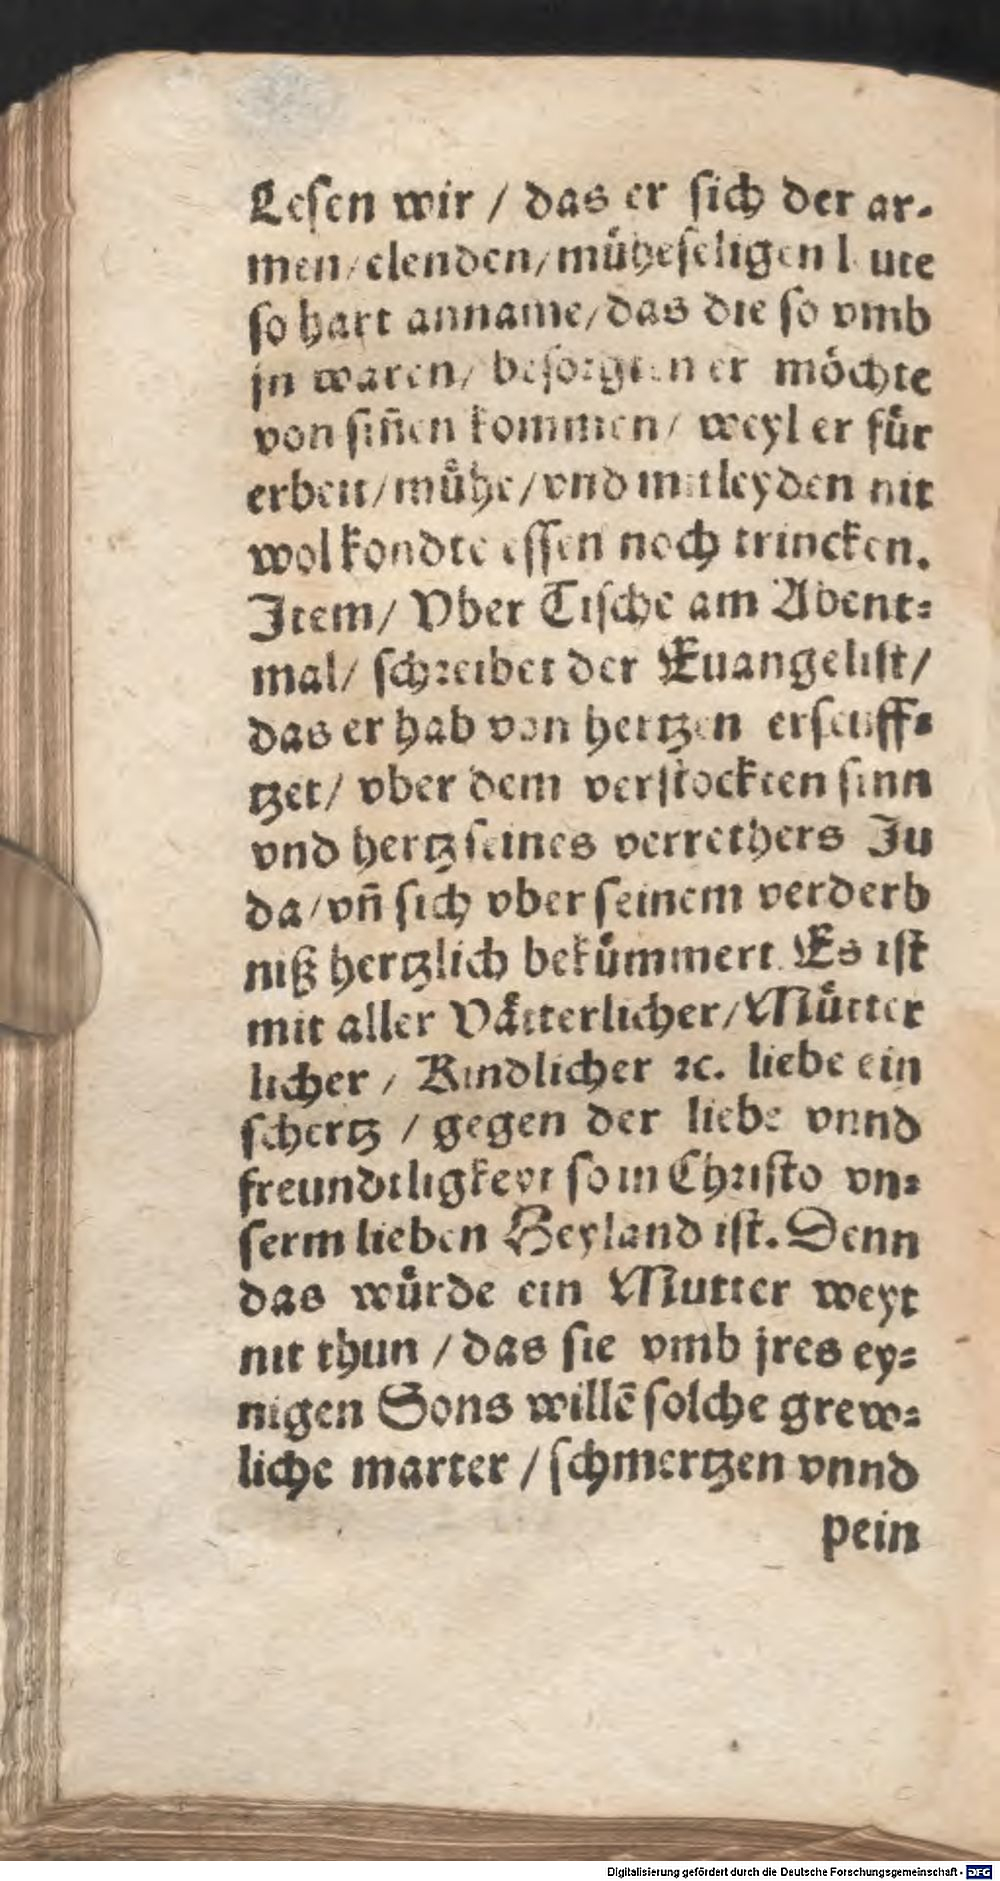 Leſen wir / das er ſich der ar-
men / elenden / müheſeligen leute
ſo hart anname / das die ſo vmb
jn waren / beſorgten er möchte
von ſiñen kommen / weyl er für
erbeit / mühe / vnd mitleyden nit
wol kondte eſſen noch trincken.
Item / Vber Tiſche am Abent-
mal / ſchreibet der Euangeliſt /
das er hab von hertzen erſeuff-
tzet / vber dem verſtockten ſinn
vnd hertz ſeines verrethers Ju
da / vñ ſich vber ſeinem verderb
niß hertzlich bekümmert. Es iſt
mit aller Vätterlicher / Mütter
licher / Kindlicher ꝛc. liebe ein
ſchertz / gegen der liebe vnnd
freundtligkeyt ſo in Chriſto vn-
ſerm lieben Heyland iſt. Denn
das würde ein Mutter weyt
nit thun / das ſie vmb jres ey-
nigen Sons willē ſolche grew-
liche marter / ſchmertzen vnnd
pein
Digitalisierung gefördert durch die Deutsche Forschungsgemeinschaft - DFG